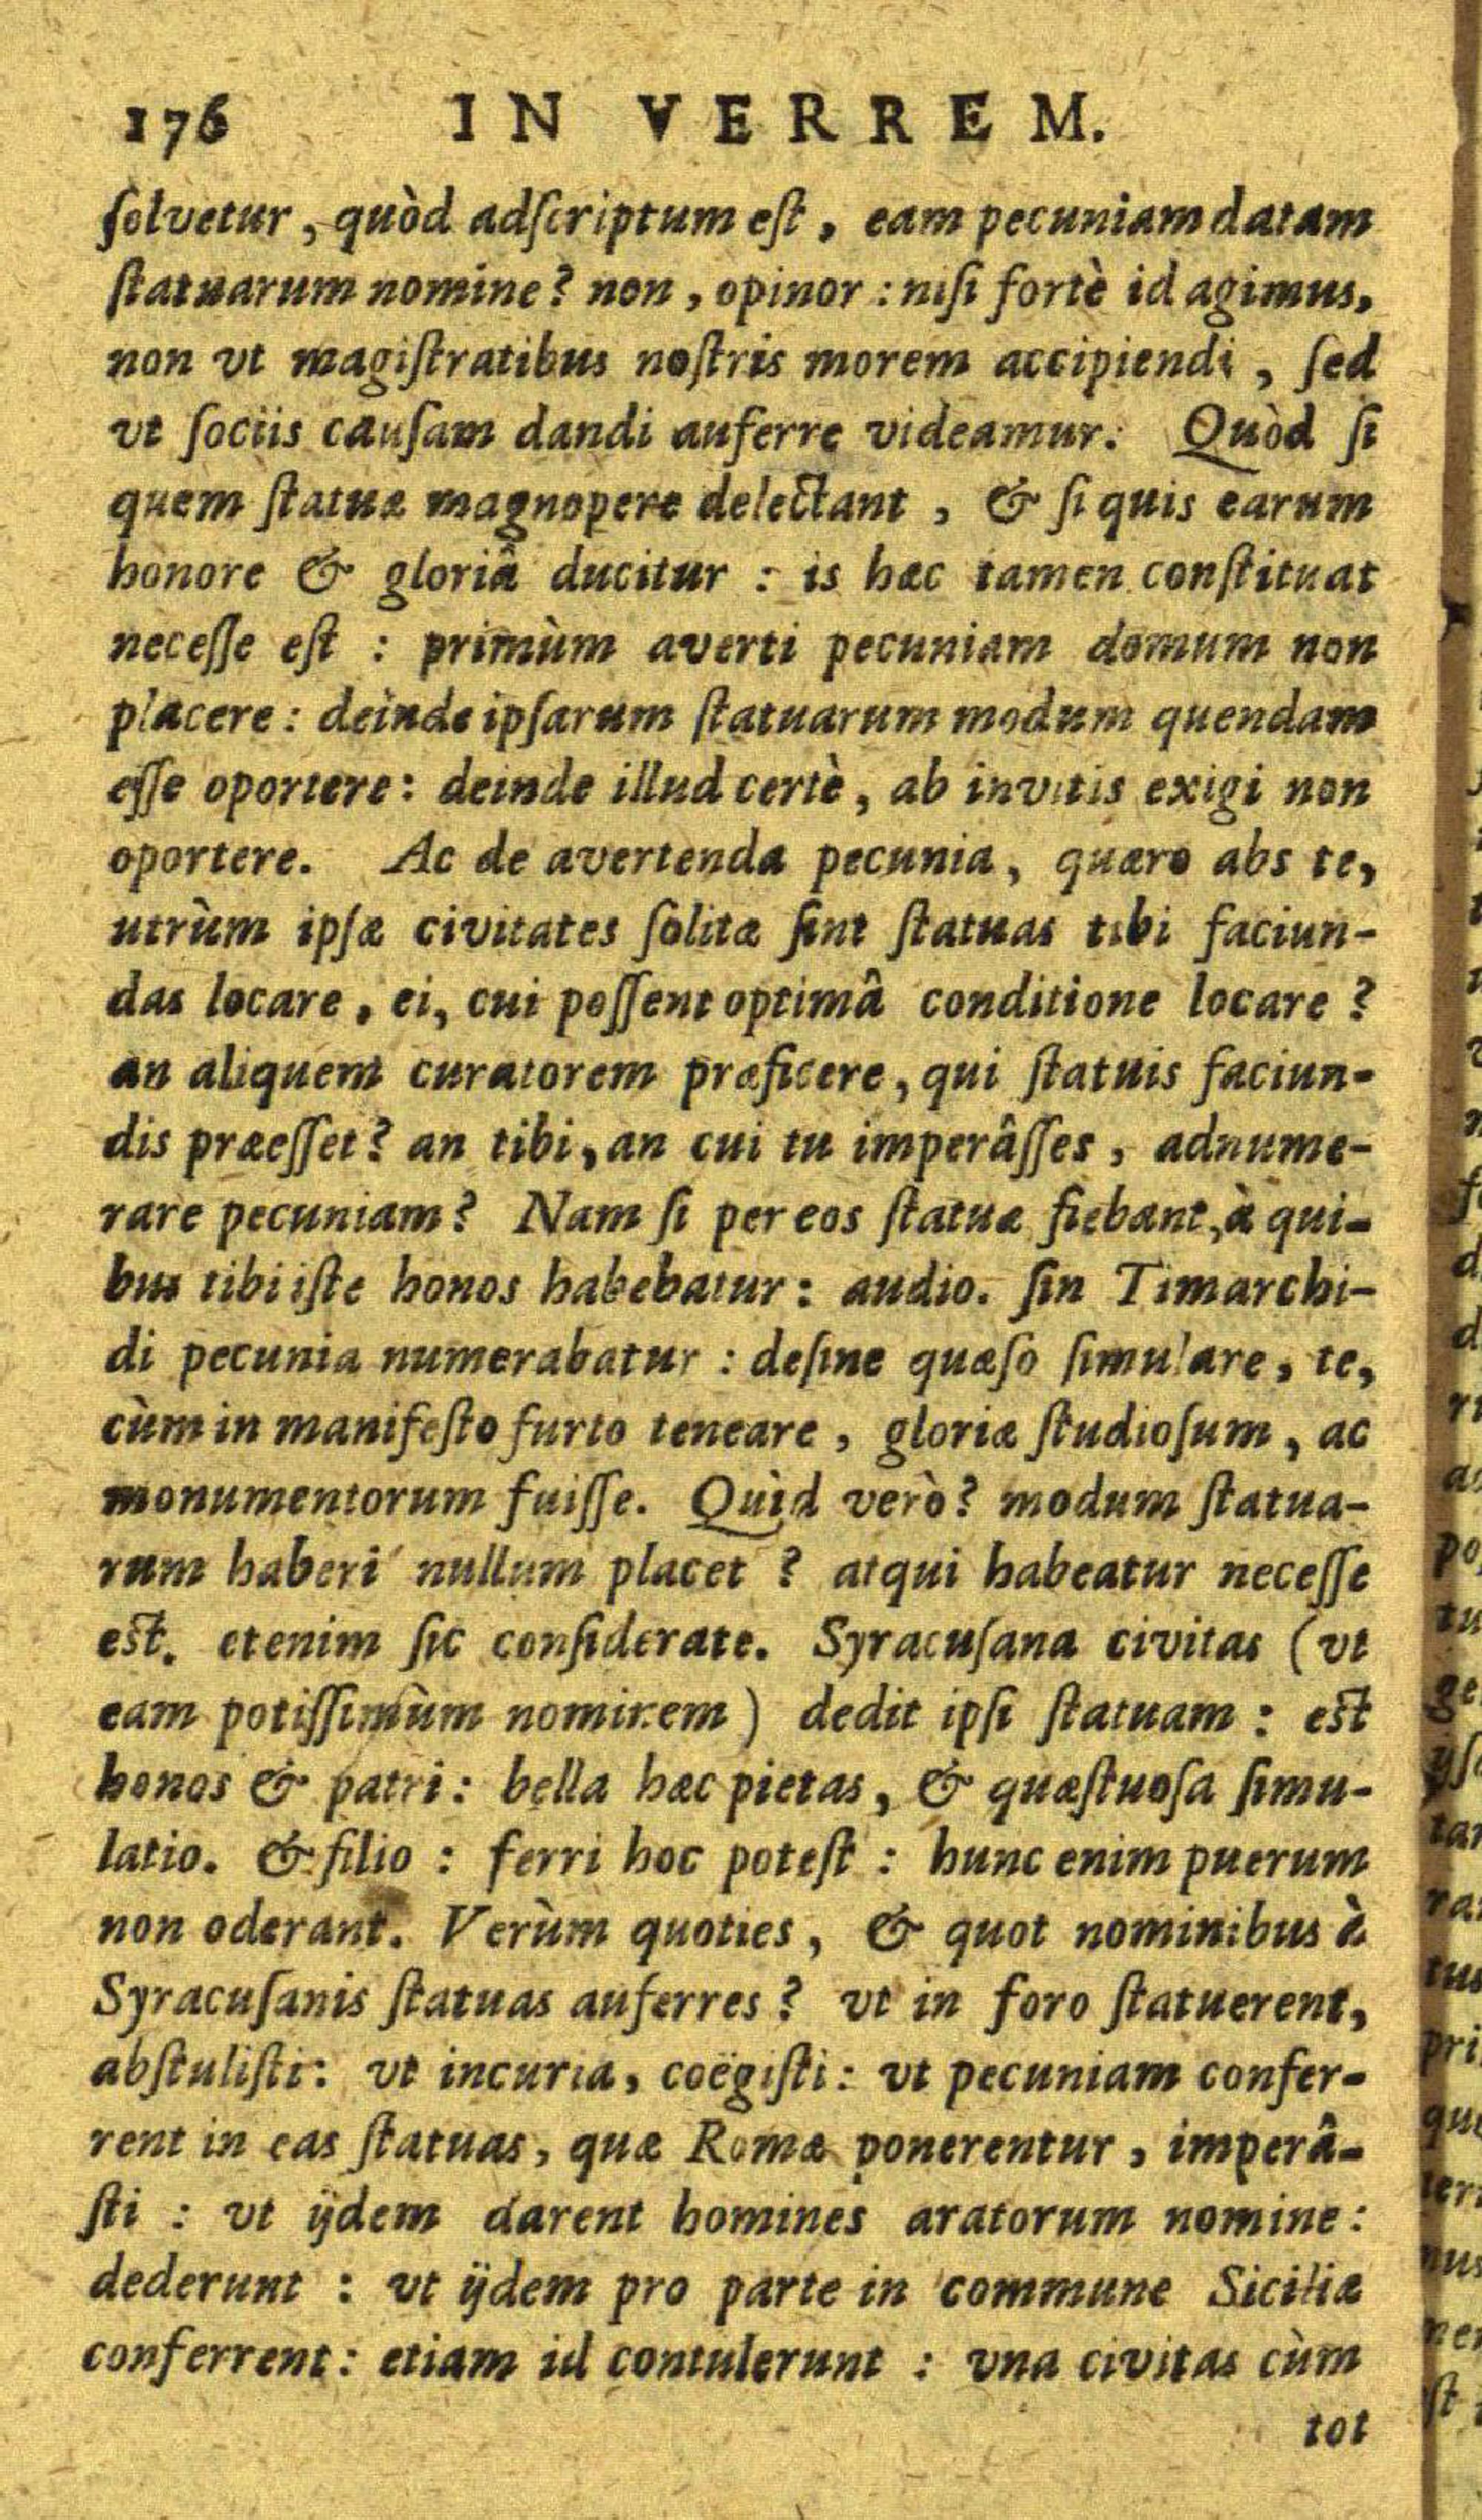 176 IN VERREM.
ſolvetur, quòd adſcriptum eſt, eam pecuniam datam
ſtatuarum nomine? non, opinor: niſi fortè id agimus,
non vt magiſtratibus noſtris morem accipiendi, ſed
vt ſociis cauſam dandi auferre videamur. Quòd ſi
quem ſtatuæ magnopere delectant, & ſi quis earum
honore & gloriâ ducitur: is hæc tamen conſtituat
neceſſe eſt: primùm averti pecuniam domum non
placere: deinde ipſarum ſtatuarum modum quendam
eſſe oportere: deinde illud certè, ab invitis exigi non
oportere. Ac de avertenda pecunia, quæro abs te,
utrùm ipſæ civitates ſolitæ ſint ſtatuas tibi faciun-
das locare, ei, cui poſſent optimâ conditione locare?
an aliquem curatorem præficere, qui ſtatuis faciun-
dis præeſſet? an tibi, an cui tu imperâſſes, adnume-
rare pecuniam? Nam ſi per eos ſtatuæ fiebant, à qui-
bus tibi iſte honos habebatur: audio. ſin Timarchi-
di pecunia numerabatur: deſine quæſo ſimulare, te,
cùm in manifeſto furto teneare, gloriæ ſtudioſum, ac
monumentorum fuiſſe. Quid verò? modum ſtatua-
rum haberi nullum placet? atqui habeatur neceſſe
eſt. etenim ſic conſiderate. Syracuſana civitas (vt
eam potiſſimùm nominem) dedit ipſi ſtatuam: eſt
honos & patri: bella hæc pietas, & quæſtuoſa ſimu-
latio. & filio: ferri hoc poteſt: hunc enim puerum
non oderant. Verùm quoties, & quot nominibus à
Syracuſanis ſtatuas auferres? vt in foro ſtatuerent,
abſtuliſti: vt in curia, coëgiſti: vt pecuniam confer-
rent in eas ſtatuas, quæ Romæ ponerentur, imperâ-
ſti: vt ijdem darent homines aratorum nomine:
dederunt: vt ijdem pro parte in commune Siciliæ
conferrent: etiam id contulerunt: vna civitas cùm
tot